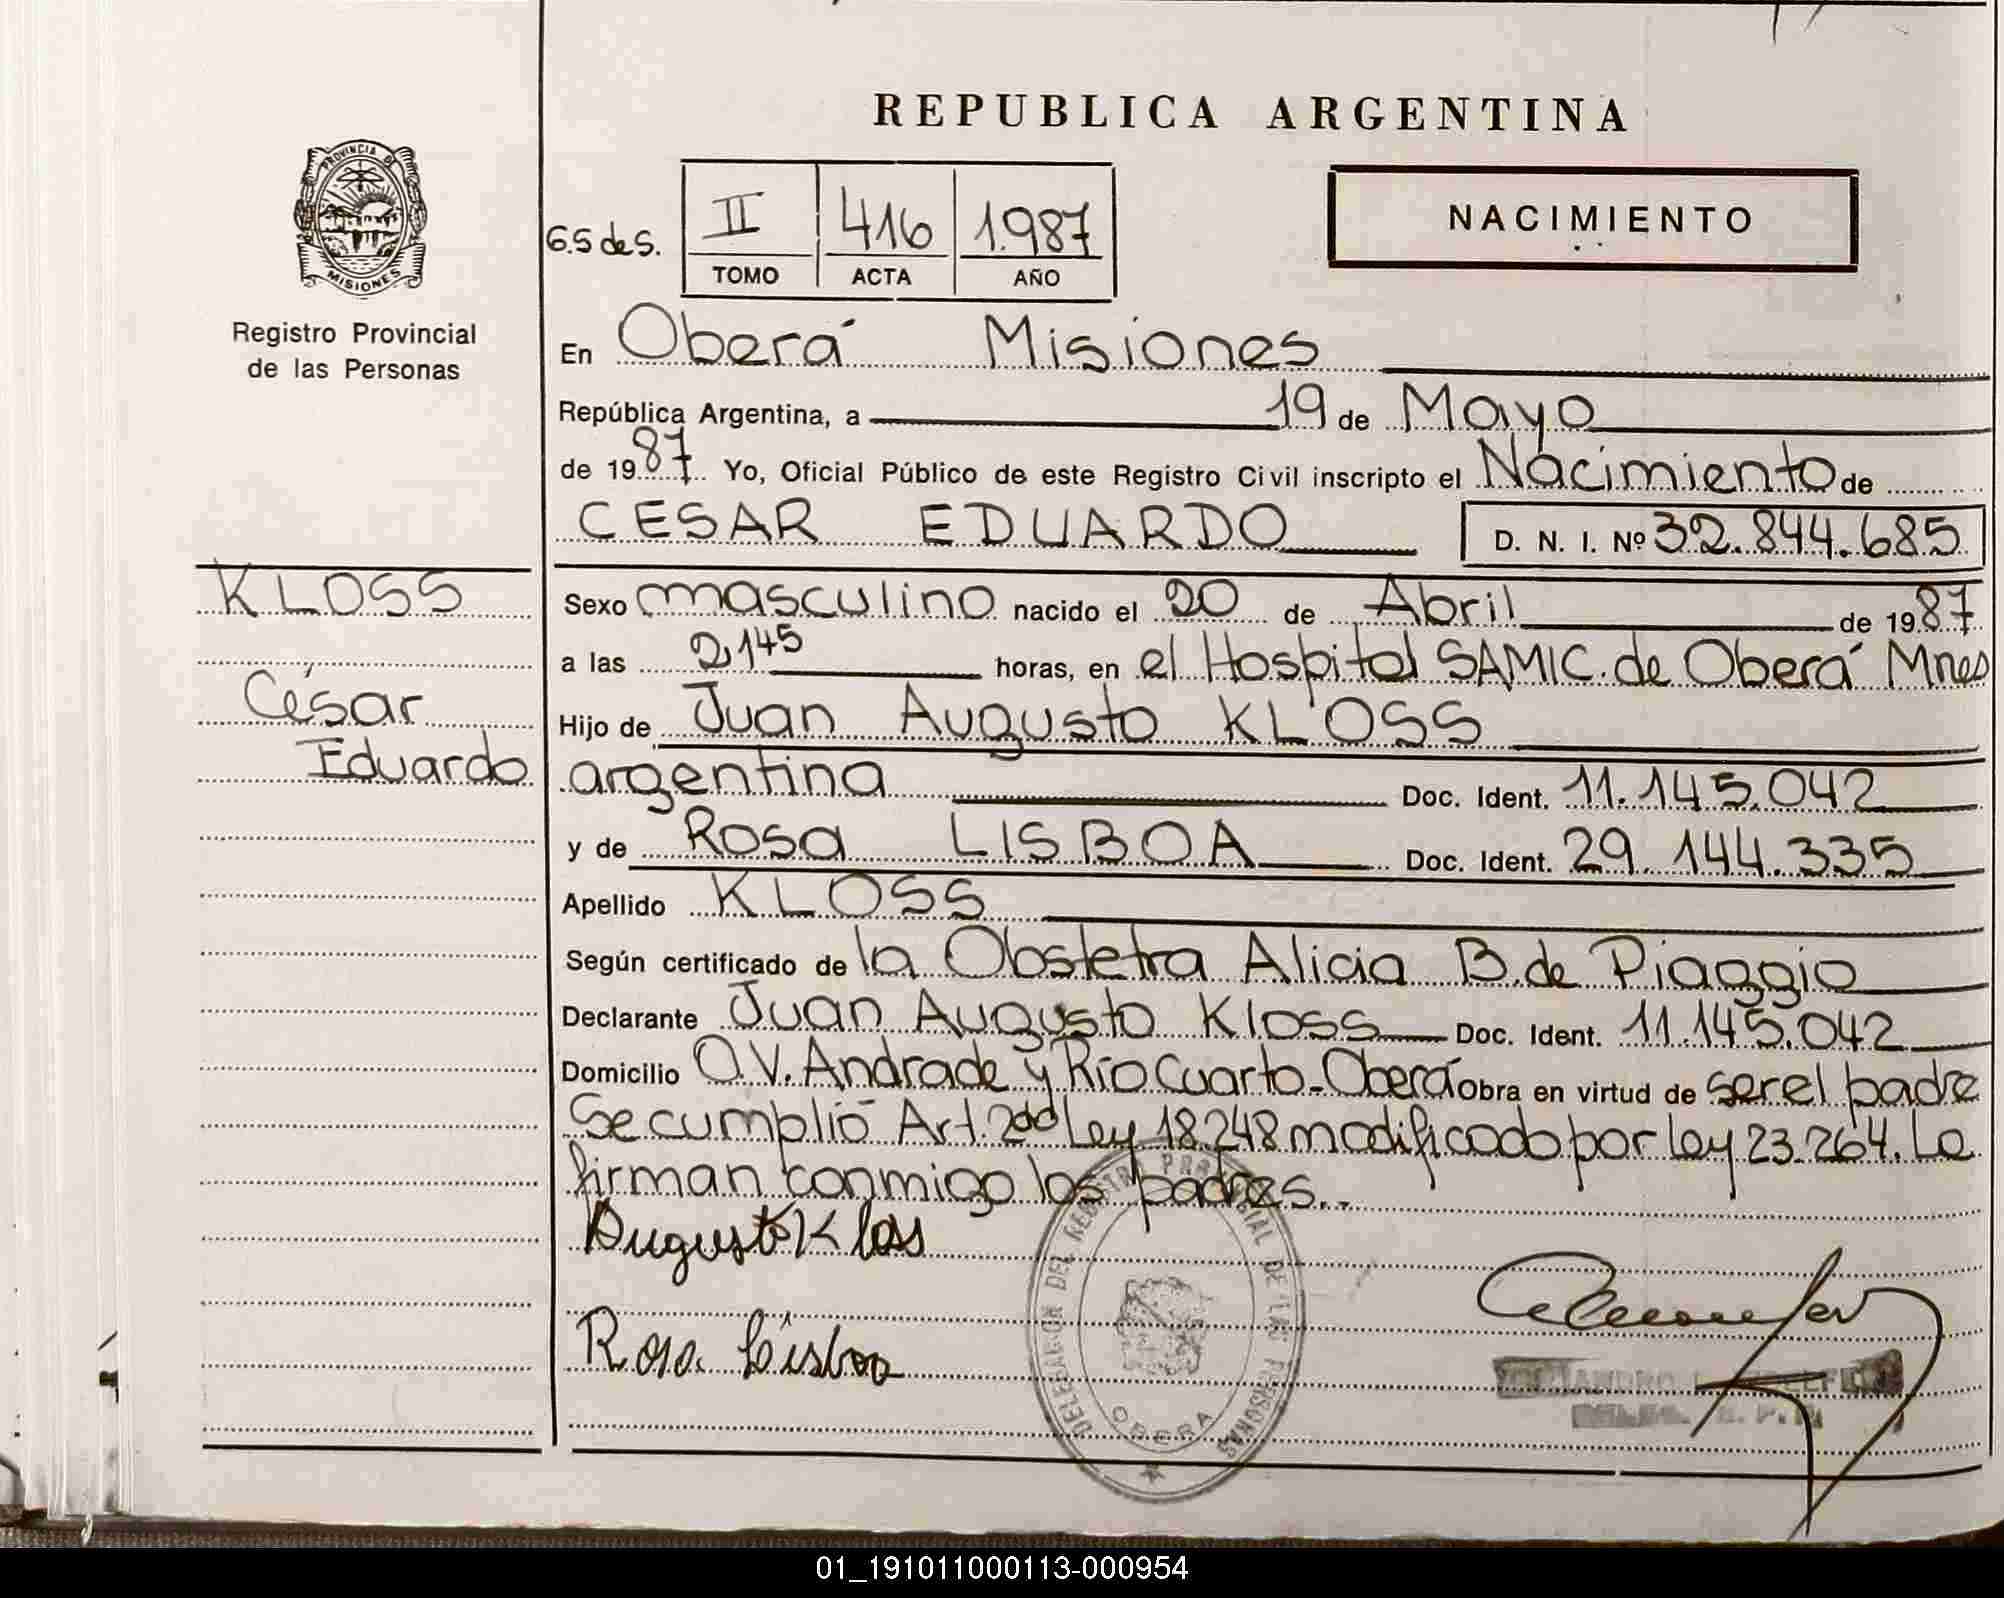 REPUBLICA ARGENTINA
PROVINCIA DE
MISIONES
Registro Provincial
de las Personas
6.5 de S.
II 416 1.987
TOMO ACTA AÑO
NACIMIENTO
En Oberá Misiones
República Argentina, a 19 de Mayo
de 1987 Yo, Oficial Público de este Registro Civil inscripto el Nacimiento de
CESAR EDUARDO D. N. I. Nº 32.844.685
KLOSS
César
Eduardo
Sexo masculino nacido el 20 de Abril de 1987
a las 2,145 horas, en el Hospital SAMIC. de Oberá Mnes
Hijo de Juan Augusto KLOSS
argentina Doc. Ident. 11.145.042
y de Rosa LISBOA Doc. Ident. 29.144.335
Apellido KLOSS
Según certificado de la Obstetra Alicia B. de Piaggio
Declarante Juan Augusto Kloss Doc. Ident. 11.145.042
Domicilio O.V. Andrade y Río Cuarto - Oberá Obra en virtud de ser el padre
Se cumplió Art. 2do Ley 18.248 modificado por ley 23.264. La
firman conmigo los padres..
Augusto Klos
Rosa Lisboa
DELEGACION DEL REGISTRO PROVINCIAL DE LAS PERSONAS
OBERA
01_191011000113-000954